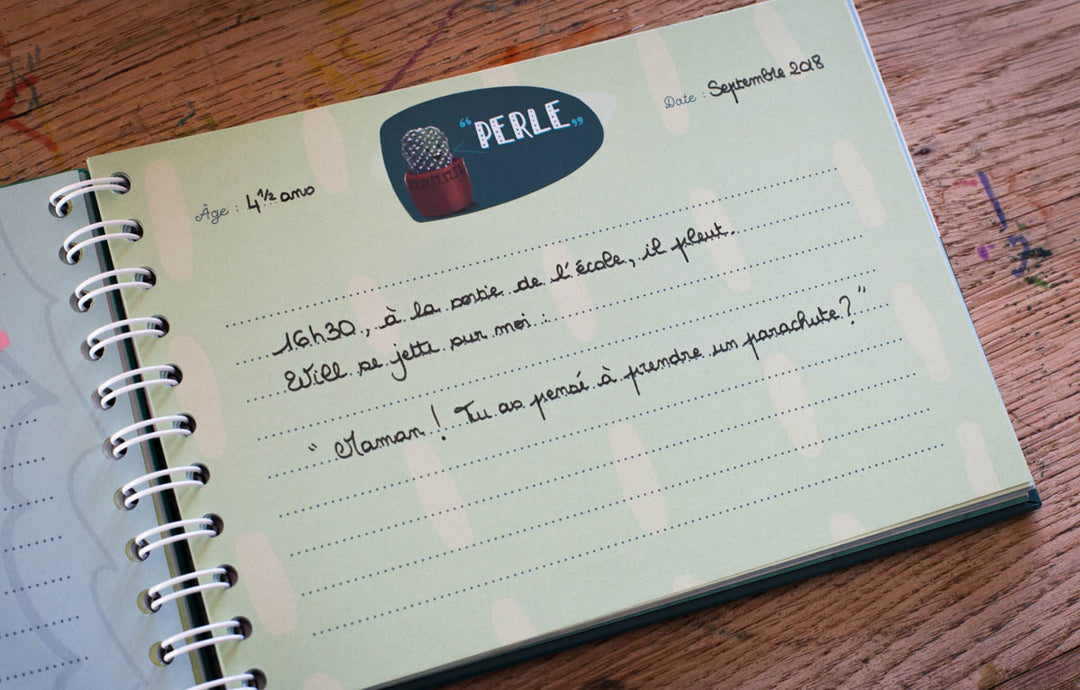 Date : Septembre 2018
“PERLE”
Âge : 4 1/2 ans
16h30, à la sortie de l'école, il pleut.
Will se jette sur moi :
“ Maman ! Tu as pensé à prendre un parachute ? ”